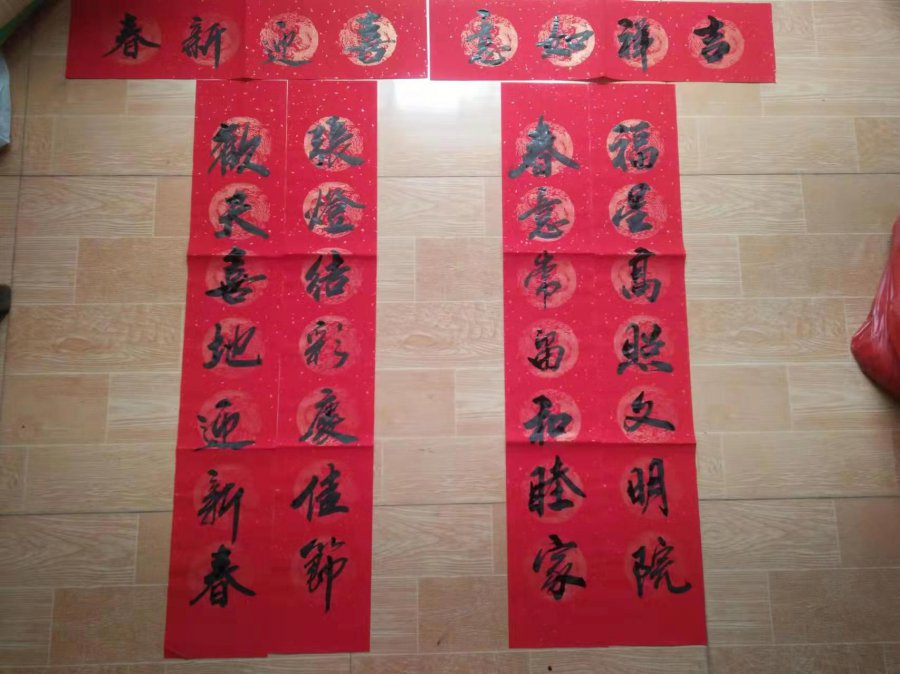 吉祥如意
喜迎新春
福星高照文明院
春意常留和睦家
張燈結彩慶佳節
歡天喜地迎新春